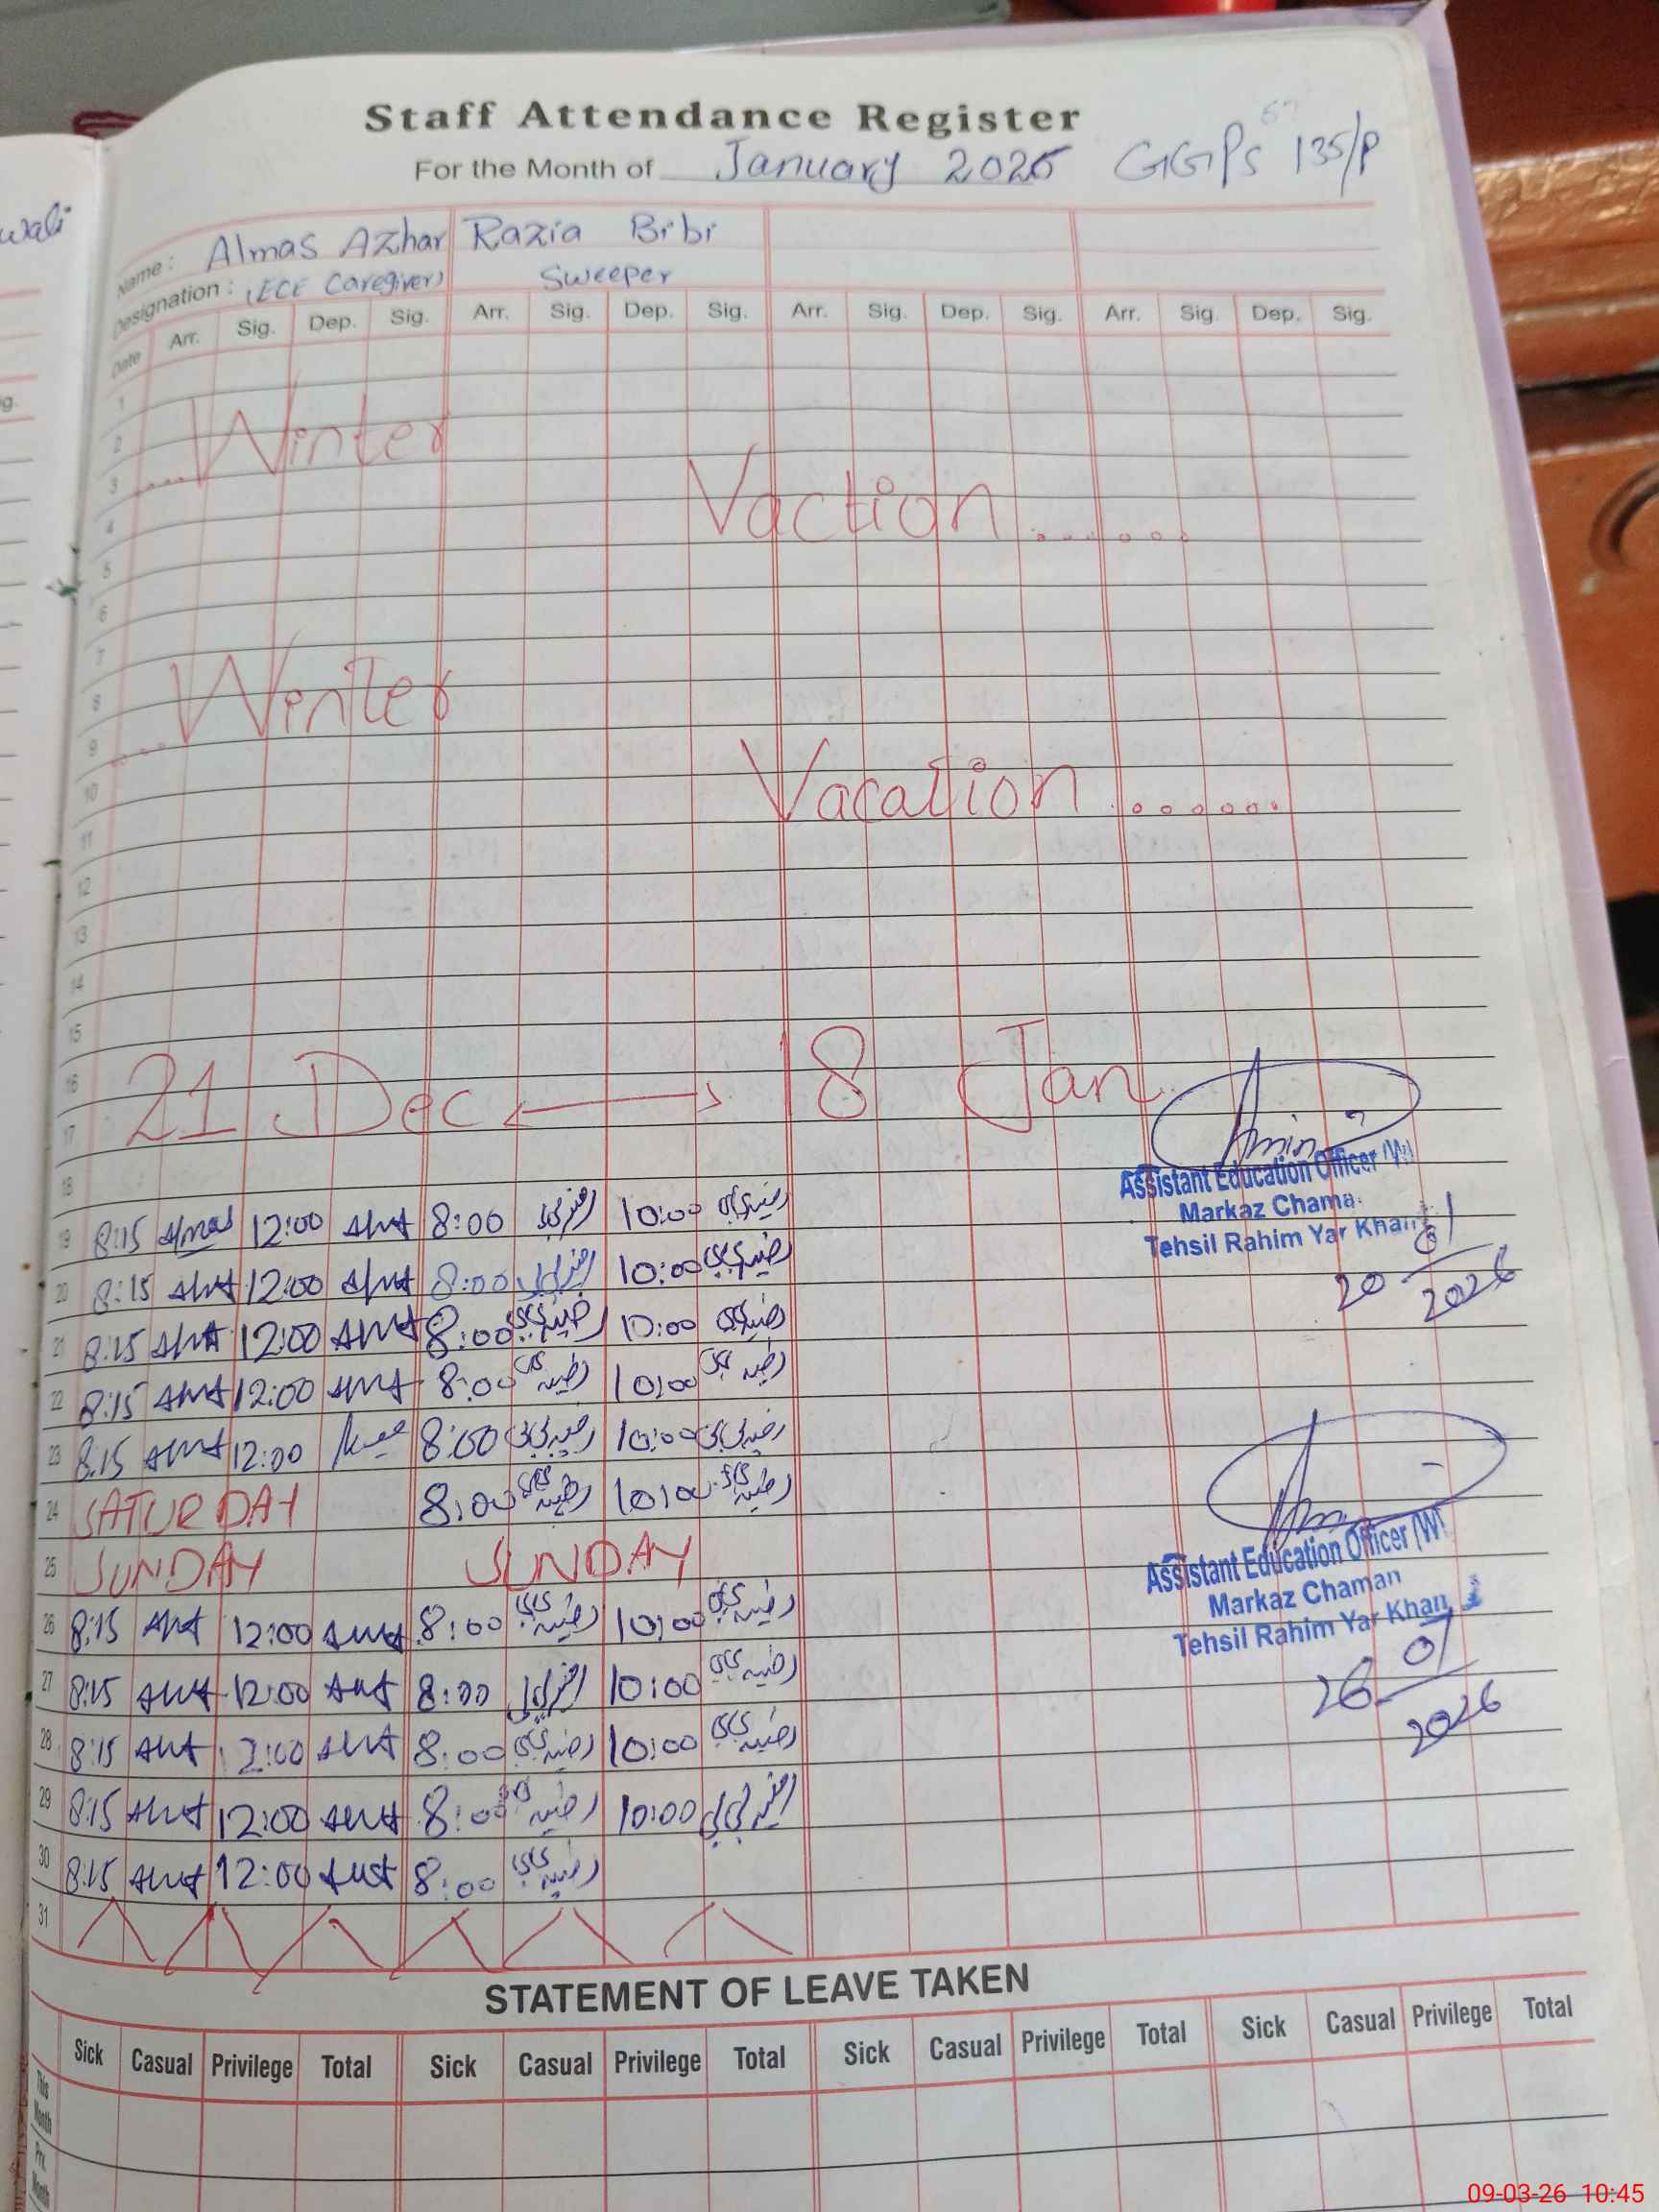 wali
Staff Attendance Register
For the Month of January 2026 GGPS 135/P
Name: Almas Azhar Razia Bibi
Designation: (ECE Caregiver) Sweeper
Date Arr. Sig. Dep. Sig. Arr. Sig. Dep. Sig. Arr. Sig. Dep. Sig. Arr. Sig. Dep. Sig.
1
2 ....Winter
3
4 Vaction......
5
6
7
8 Winter
9 ....
10 Vacation.......
11
12
13
14
15
16 21 Dec ↔ 18 Jan
17
18
Assistant Education Officer (W)
Markaz Chama
Tehsil Rahim Yar Khan
20 01 2026
19 8:15 Almas 12:00 8:00 رضیہ بی بی 10:00 رضیہ بی بی
20 8:15 12:00 8:00 رضیہ بی بی 10:00 رضیہ بی بی
21 8:15 12:00 8:00 رضیہ بی بی 10:00 رضیہ بی بی
22 8:15 12:00 8:00 رضیہ بی بی 10:00 رضیہ بی بی
23 8:15 12:00 8:00 رضیہ بی بی 10:00 رضیہ بی بی
24 SATURDAY 8:00 رضیہ بی بی 10:00 رضیہ بی بی
25 SUNDAY SUNDAY
Assistant Education Officer (W)
Markaz Chaman
Tehsil Rahim Yar Khan
26 01 2026
26 8:15 12:00 8:00 رضیہ بی بی 10:00 رضیہ بی بی
27 8:15 12:00 8:00 رضیہ بی بی 10:00 رضیہ بی بی
28 8:15 12:00 8:00 رضیہ بی بی 10:00 رضیہ بی بی
29 8:15 12:00 8:00 رضیہ بی بی 10:00 رضیہ بی بی
30 8:15 12:00 8:00 رضیہ بی بی
31
STATEMENT OF LEAVE TAKEN
Sick Casual Privilege Total Sick Casual Privilege Total Sick Casual Privilege Total Sick Casual Privilege Total
This Month
Prv. Month
09-03-26 10:45